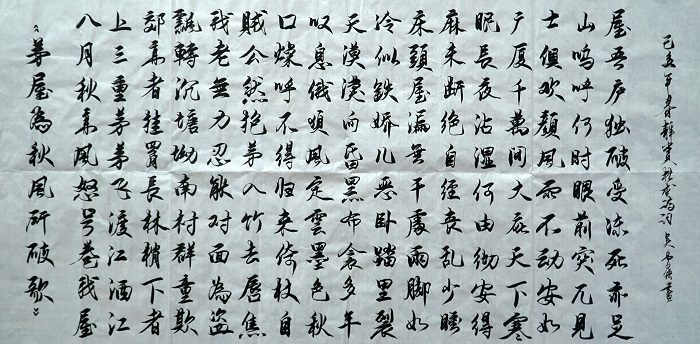 《茅屋為秋風所破歌》
八月秋高風怒号卷我屋
上三重茅茅子渡江洒江
郊高者挂罥長林梢下者
飄轉沉塘坳南村群童欺
我老無力忍能对面為盗
贼公然抱茅入竹去唇焦
口燥呼不得归来倚杖自
叹息俄頃風定雲墨色秋
天漠漠向昏黑布衾多年
冷似鉄娇儿恶卧踏里裂
床頭屋漏無干處雨脚如
麻未断绝自经丧乱少睡
眠長夜沾湿何由彻安得
广厦千萬间大庇天下寒
士俱欢颜風雨不動安如
山嗚呼何时眼前突兀見
屋吾庐独破受冻死亦足
己丑年春